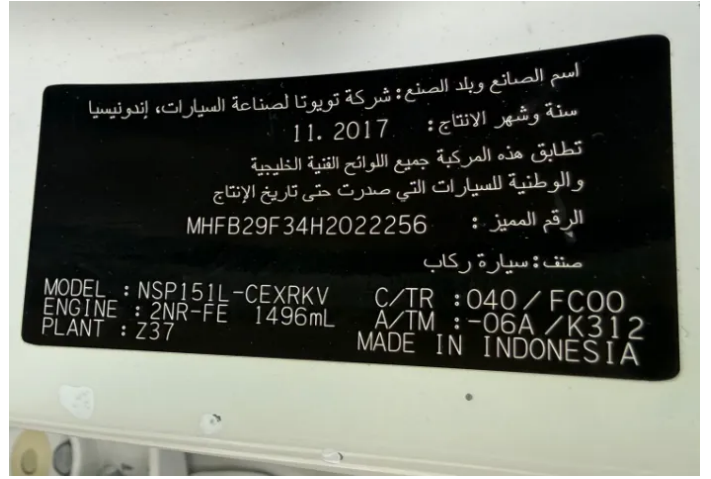 اسم الصانع وبلد الصنع: شركة تويوتا لصناعة السيارات، إندونيسيا
سنة وشهر الانتاج: 11. 2017
تطابق هذه المركبة جميع اللوائح الفنية الخليجية
والوطنية للسيارات التي صدرت حتى تاريخ الإنتاج
الرقم المميز : MHFB29F34H2022256
صنف: سيارة ركاب
MODEL : NSP151L-CEXRKV C/TR : 040 / FC00
ENGINE : 2NR-FE 1496mL A/TM : -06A / K312
PLANT : Z37 MADE IN INDONESIA